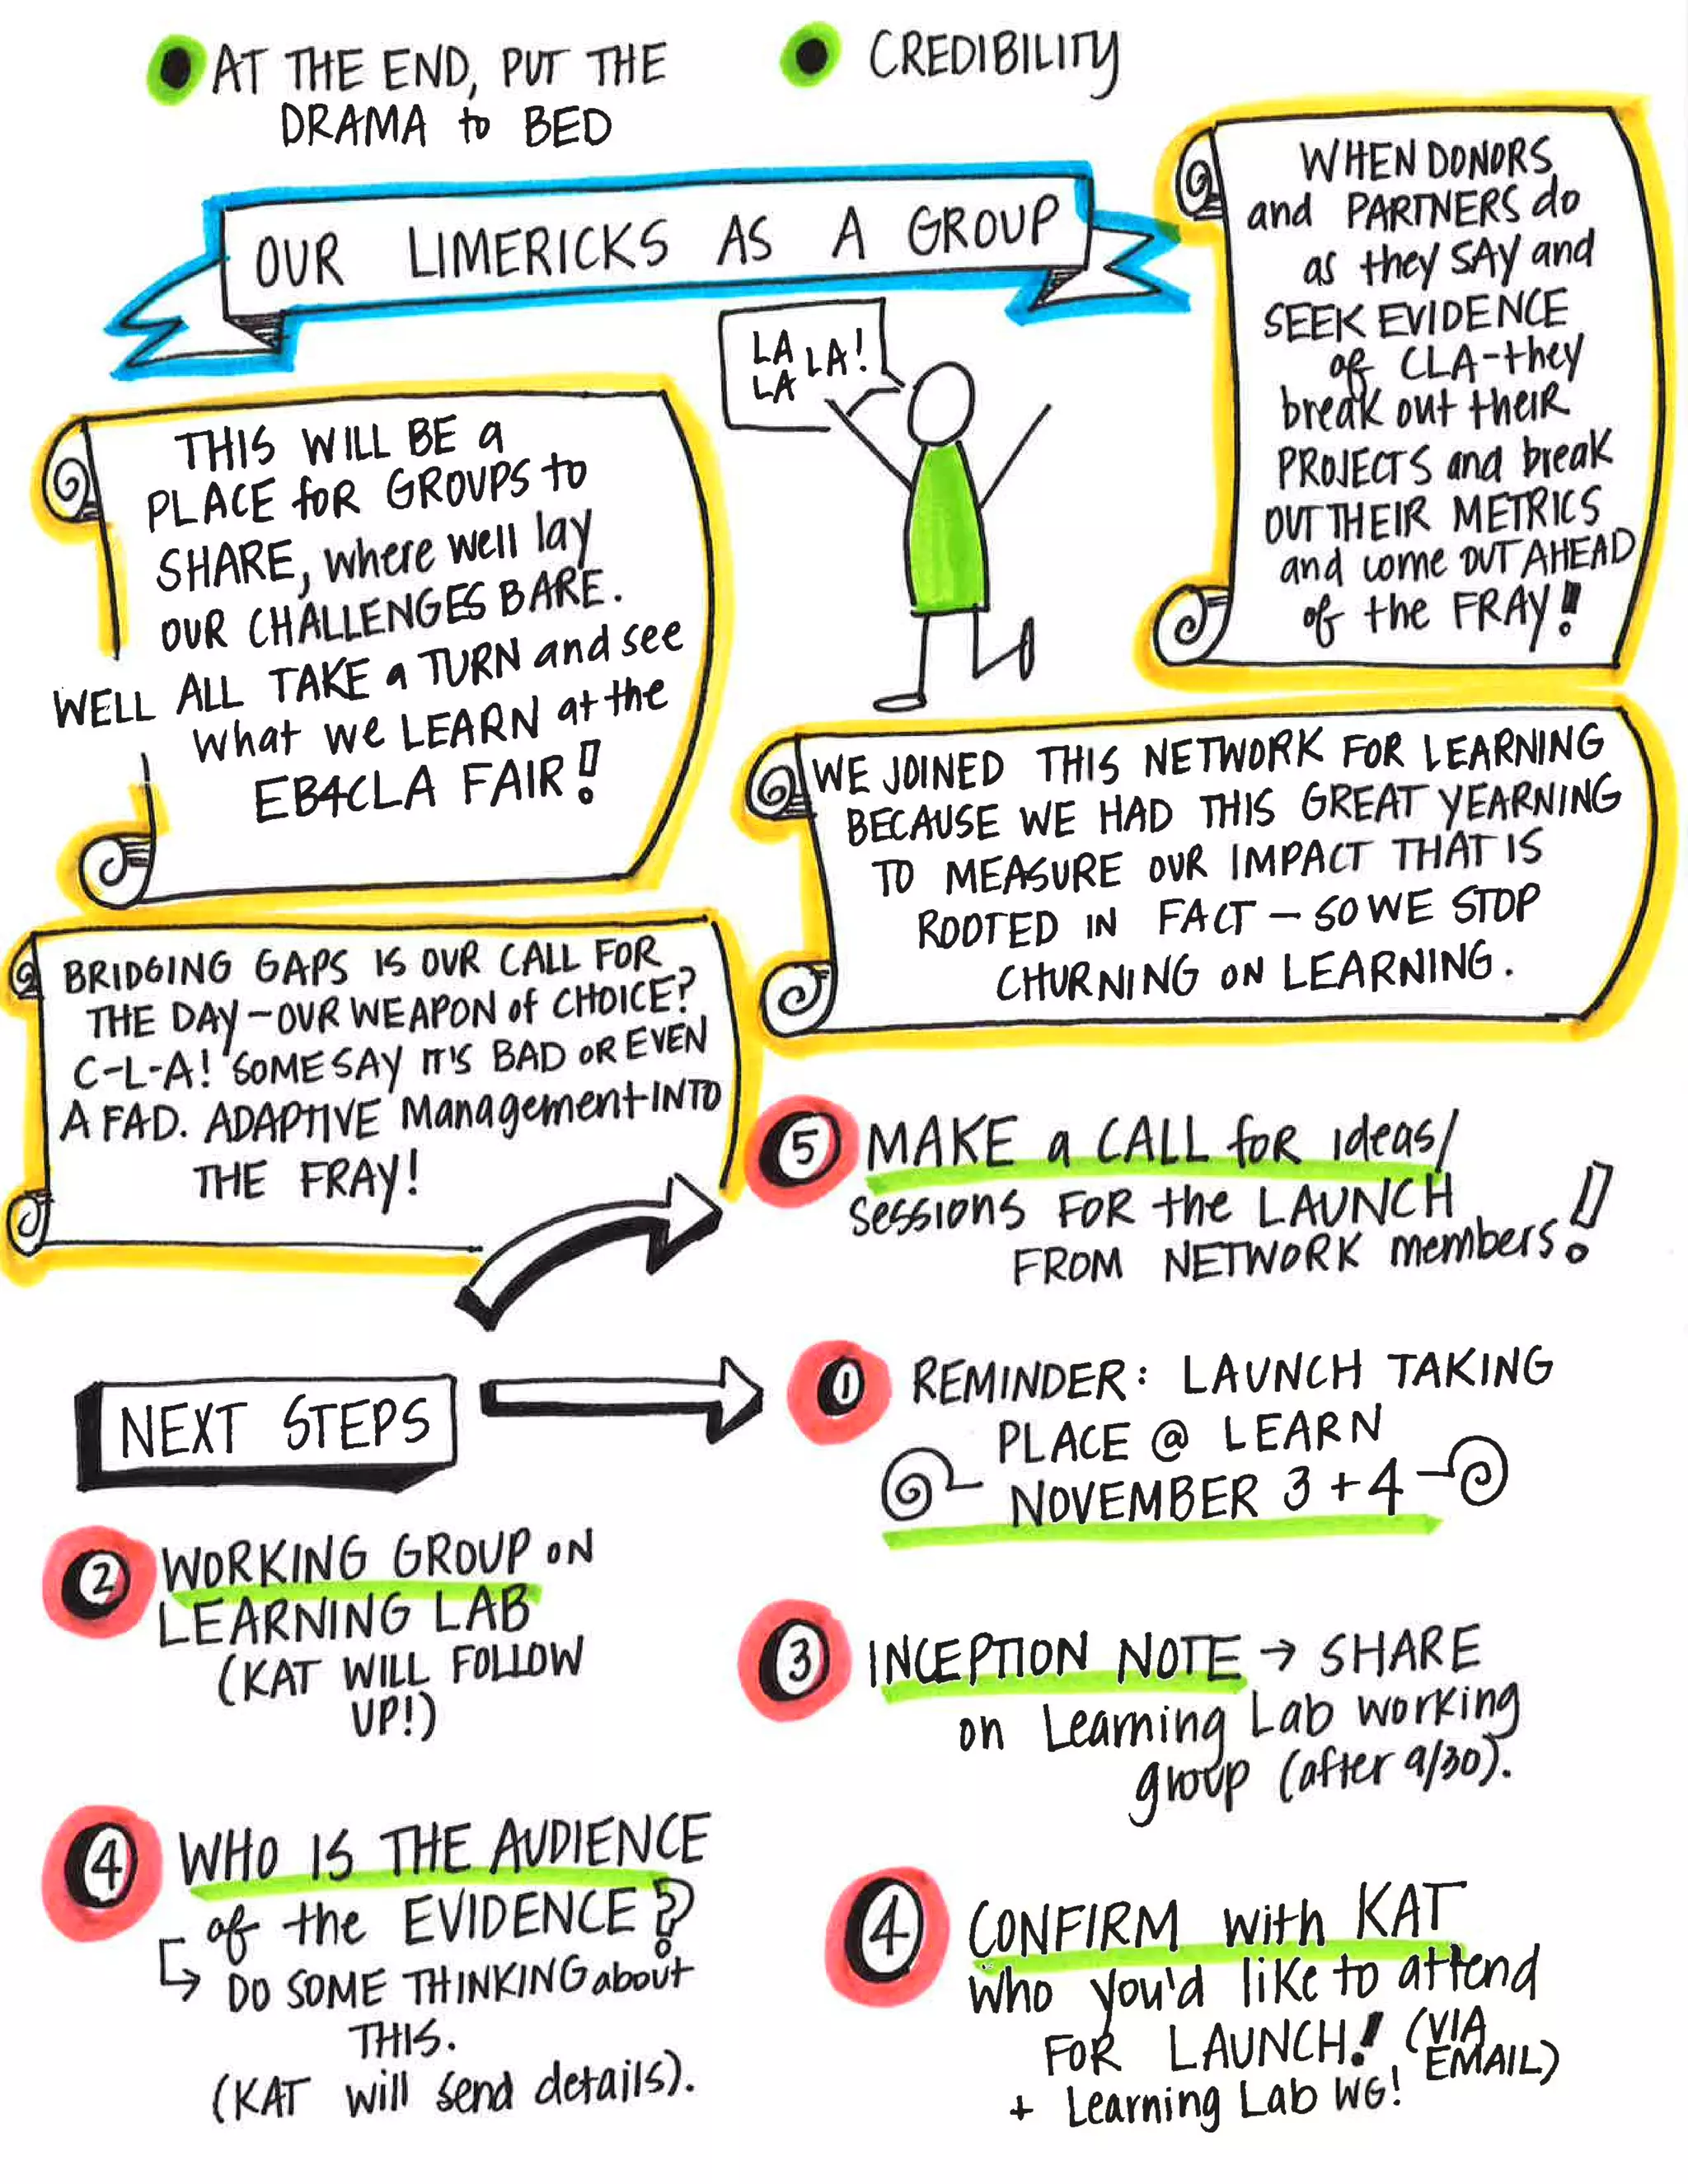 AT THE END, PUT THE
DRAMA to BED
CREDIBILITY
OUR LIMERICKS AS A GROUP
LA LA!
LA
THIS WILL BE a
PLACE foR GROUPS to
SHARE, where well lay
OUR CHALLENGES BARE.
WELL ALL TAKE a TURN and see
what we LEARN at the
EB4CLA FAIR!
WHEN DONORS
and PARTNERS do
as they SAY and
SEEK EVIDENCE
of CLA-they
break out theIR
PROJECTS and break
OUT THEIR METRICS
and come OUT AHEAD
of the FRAY!
WE JOINED THIS NETWORK FOR LEARNING
BECAUSE WE HAD THIS GREAT YEARNING
TO MEASURE OUR IMPACT THAT IS
ROOTED IN FACT — SO WE STOP
CHURNING ON LEARNING.
BRIDGING GAPS IS OUR CALL FOR
THE DAY - OUR WEAPON of CHOICE?
C-L-A! SOME SAY IT'S BAD OR EVEN
A FAD. ADAPTIVE Management INTO
THE FRAY!
5 MAKE a CALL foR ideas/
sessions FOR the LAUNCH
FROM NETWORK members!
NEXT STEPS
1 REMINDER: LAUNCH TAKING
PLACE @ LEARN
NOVEMBER 3 + 4
2 WORKING GROUP ON
LEARNING LAB
(KAT WILL FOLLOW
UP!)
3 INCEPTION NOTE → SHARE
on Learning Lab working
group (after 9/30).
4 WHO IS THE AUDIENCE
of the EVIDENCE?
↳ DO SOME THINKING about
THIS.
(KAT will send details).
4 CONFIRM with KAT
who you'd like to attend
FOR LAUNCH! (VIA
EMAIL)
+ Learning Lab WG!